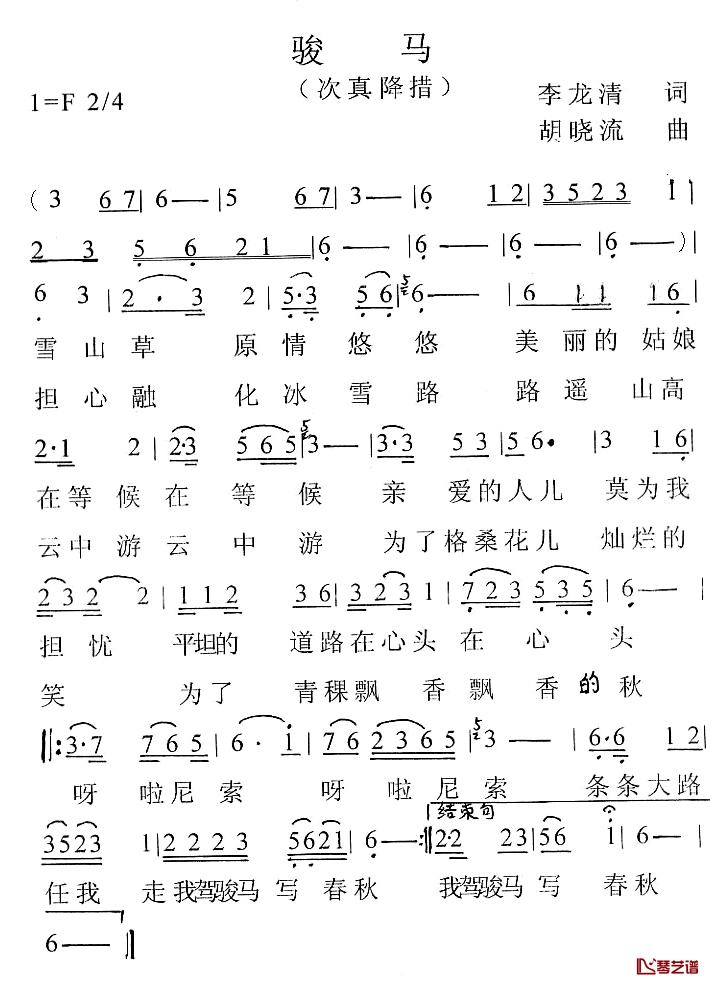 骏 马
（次真降措）
1=F 2/4
李龙清 词
胡晓流 曲
(3 67|6——|5 67|3——|6 12|3523 1|
2 3 5 6 21|6——|6——|6——|6——)|
6 3|2·3 2|5·3 56|6——|6 11 16|
雪山草 原情悠悠 美丽的姑娘
担心融 化冰雪路 路遥山高
2·1 2|2·3 565|3——|3·3 53|56·|3 16|
在等候在等候 亲 爱的人儿 莫为我
云中游云中游 为了格桑花儿 灿烂的
232 2|112 36|323 1|723 535|6——|
担忧 平坦的 道路在心头在心头
笑 为了 青稞飘香飘香的秋
‖:3·7 765|6·i|76 2365|3——|6·6 12|
呀 啦尼索 呀 啦尼索 条条大路
结束句
3523 1|2223 5621|6——:‖2·2 23|56 1|
任我 走我驾骏马写春秋 我驾骏马写 春秋
6——‖
琴艺谱